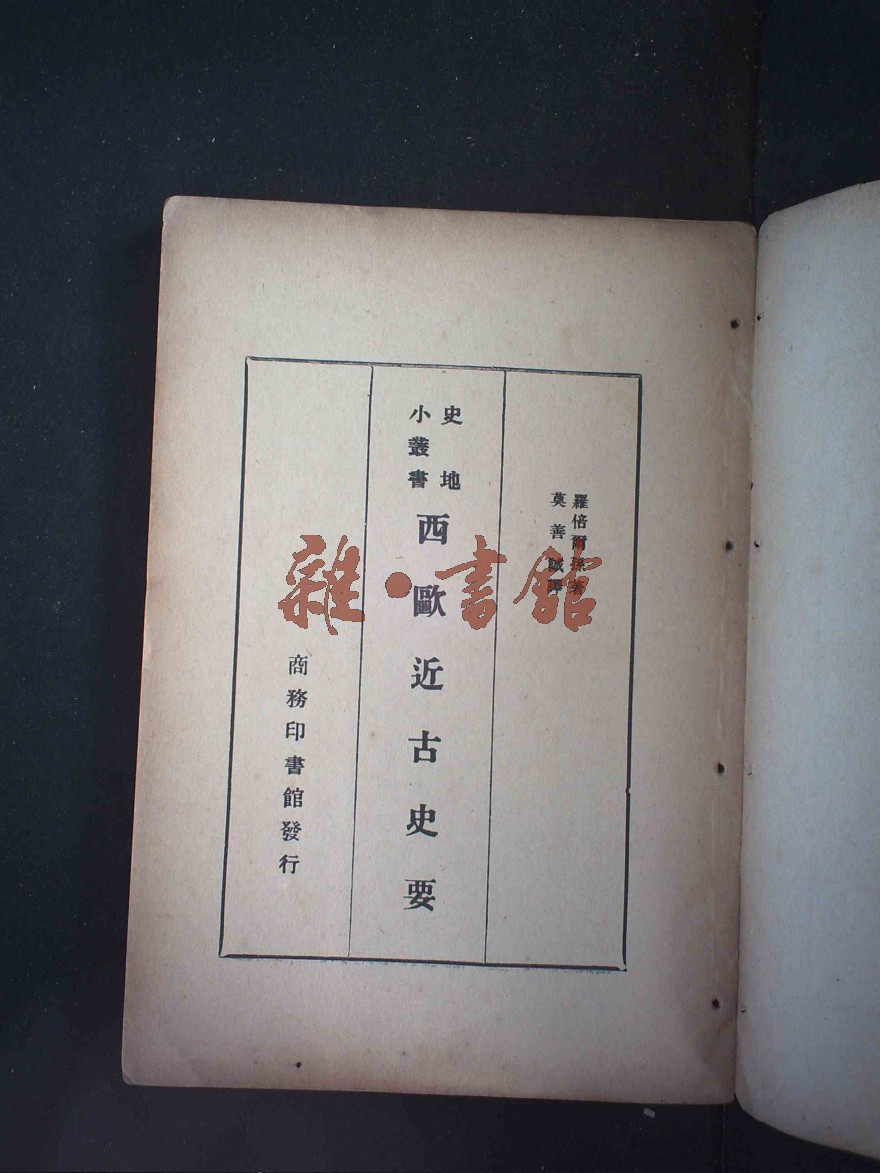 羅倍爾孫著
莫善誠譯
史地
小叢書
西歐近古史要
商務印書館發行
雜·書館